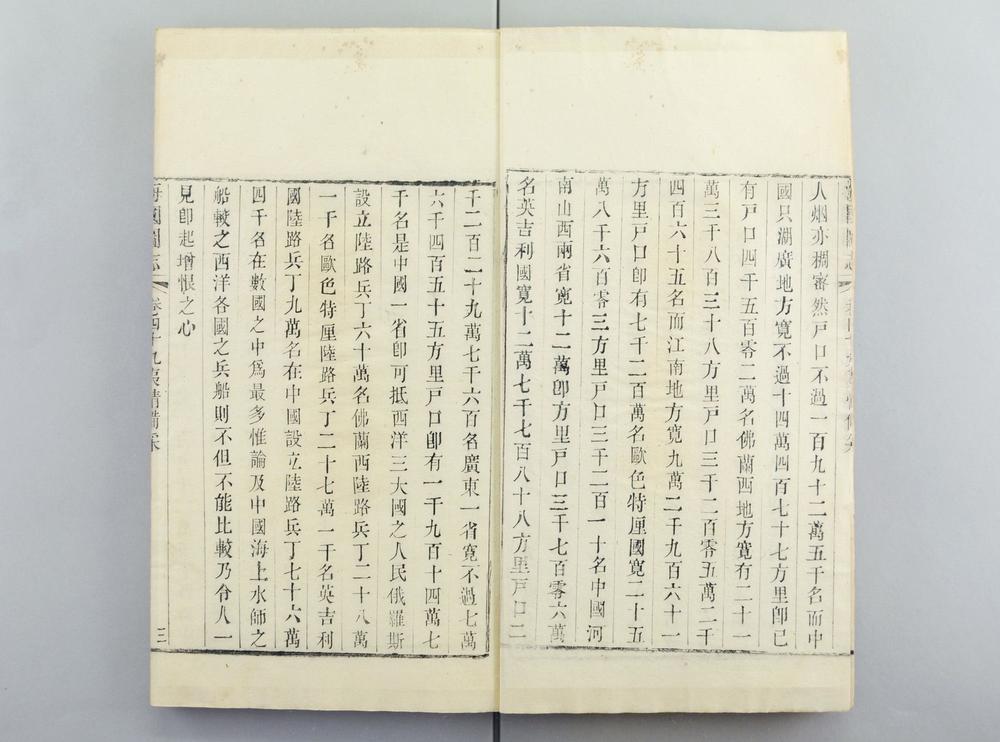 人烟亦稠密然戸口不過一百九十二萬五千名而中
國只湖廣地方寬不過十四萬四百七十七方里卽已
有戸口四千五百零二萬名佛蘭西地方寬有二十一
萬三千八百三十八方里戸口三千二百零五萬二千
四百六十五名而江南地方寬九萬二千九百六十一
方里戸口卽有七千二百萬名歐色特厘國寬二十五
萬八千六百零三方里戸口三千二百一十名中國河
南山西兩省寬十二萬卽方里戸口三千七百零六萬
名英吉利國寬十二萬七千七百八十八方里戸口二
千二百二十九萬七千六百名廣東一省寬不過七萬
六千四百五十五方里戸口卽有一千九百十四萬七
千名是中國一省卽可抵西洋三大國之人民俄羅斯
設立陸路兵丁六十萬名佛蘭西陸路兵丁二十八萬
一千名歐色特厘陸路兵丁二十七萬一千名英吉利
國陸路兵丁九萬名在中國設立陸路兵丁七十六萬
四千名在數國之中爲最多惟論及中國海上水師之
船較之西洋各國之兵船則不但不能比較乃令人一
見卽起增恨之心
海國圖志 卷四十九 夷情備采 三